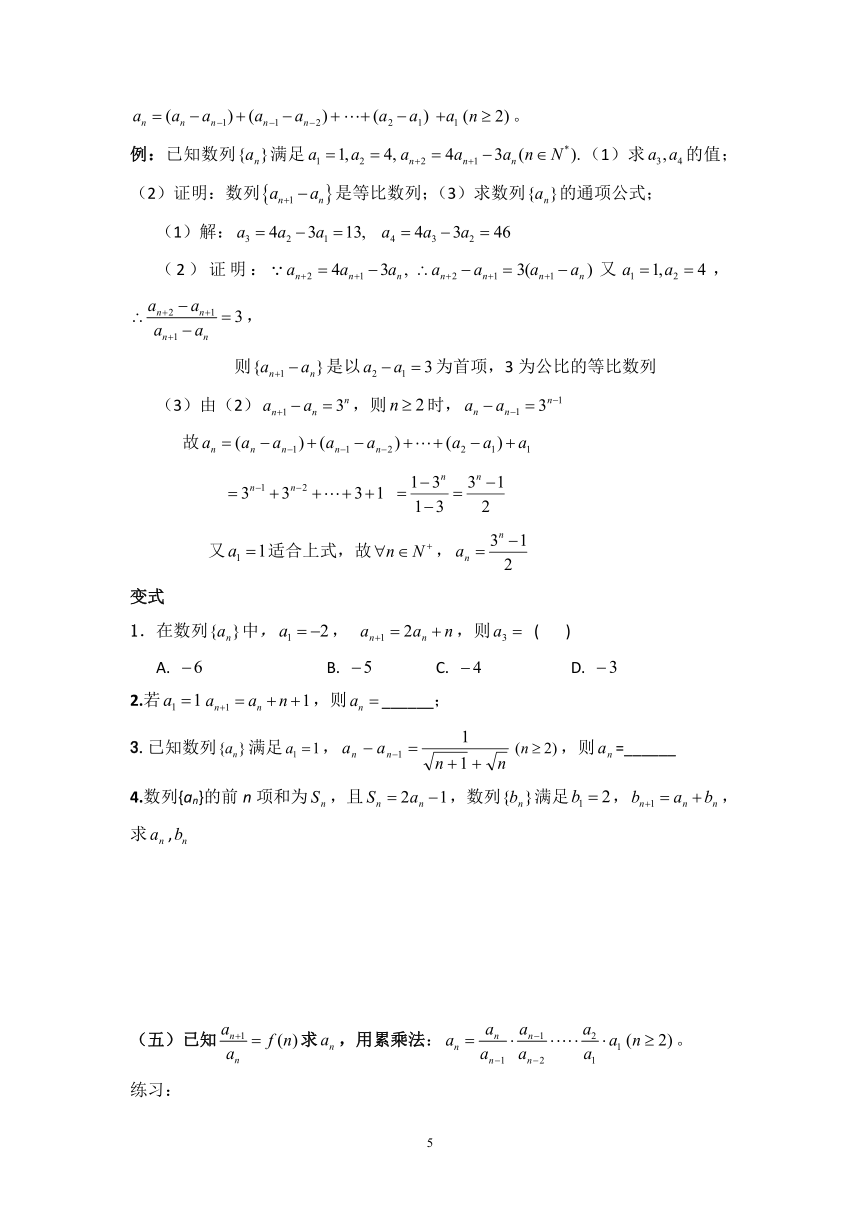 aₙ = (aₙ − aₙ₋₁) + (aₙ₋₁ − aₙ₋₂) + ⋯ + (a₂ − a₁) + a₁ (n ≥ 2)。
例：已知数列{aₙ}满足a₁ = 1, a₂ = 4, aₙ₊₂ = 4aₙ₊₁ − 3aₙ(n ∈ N*).（1）求a₃, a₄的值；
（2）证明：数列{aₙ₊₁ − aₙ}是等比数列；（3）求数列{aₙ}的通项公式；
（1）解：a₃ = 4a₂ − 3a₁ = 13, a₄ = 4a₃ − 3a₂ = 46
（2）证明：∵ aₙ₊₂ = 4aₙ₊₁ − 3aₙ, ∴ aₙ₊₂ − aₙ₊₁ = 3(aₙ₊₁ − aₙ) 又 a₁ = 1, a₂ = 4，
∴ (aₙ₊₂ − aₙ₊₁)/(aₙ₊₁ − aₙ) = 3，
则{aₙ₊₁ − aₙ}是以a₂ − a₁ = 3为首项，3为公比的等比数列
（3）由（2）aₙ₊₁ − aₙ = 3ⁿ，则n ≥ 2时，aₙ − aₙ₋₁ = 3ⁿ⁻¹
故aₙ = (aₙ − aₙ₋₁) + (aₙ₋₁ − aₙ₋₂) + ⋯ + (a₂ − a₁) + a₁
= 3ⁿ⁻¹ + 3ⁿ⁻² + ⋯ + 3 + 1 = (1 − 3ⁿ)/(1 − 3) = (3ⁿ − 1)/2
又a₁ = 1适合上式，故∀n ∈ N⁺，aₙ = (3ⁿ − 1)/2
变式
1．在数列{aₙ}中，a₁ = −2， aₙ₊₁ = 2aₙ + n，则a₃ = （ ）
A. −6 B. −5 C. −4 D. −3
2.若a₁ = 1 aₙ₊₁ = aₙ + n + 1，则aₙ = ______；
3. 已知数列{aₙ}满足a₁ = 1，aₙ − aₙ₋₁ = 1/(√(n+1) + √n) (n ≥ 2)，则aₙ=______
4.数列{aₙ}的前n项和为Sₙ，且Sₙ = 2aₙ − 1，数列{bₙ}满足b₁ = 2，bₙ₊₁ = aₙ + bₙ，
求aₙ,bₙ
（五）已知aₙ₊₁/aₙ = f(n)求aₙ，用累乘法：aₙ = aₙ/aₙ₋₁ · aₙ₋₁/aₙ₋₂ · ⋯ · a₂/a₁ · a₁ (n ≥ 2)。
练习：
5